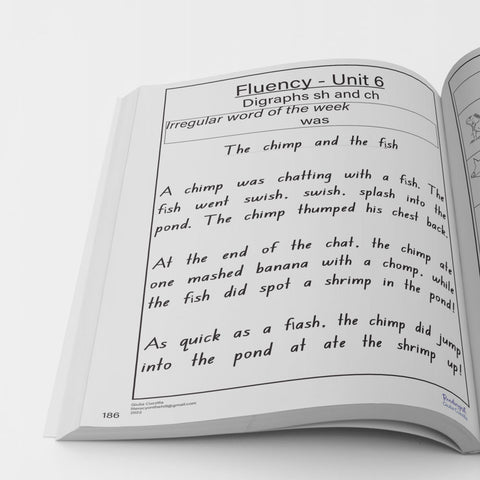 Fluency - Unit 6
Digraphs sh and ch
Irregular word of the week
was
The chimp and the fish
A chimp was chatting with a fish. The
fish went swish, swish, splash into the
pond. The chimp thumped his chest back.
At the end of the chat, the chimp ate
one mashed banana with a chomp, while
the fish did spot a shrimp in the pond!
As quick as a flash, the chimp did jump
into the pond at ate the shrimp up!
186
2022